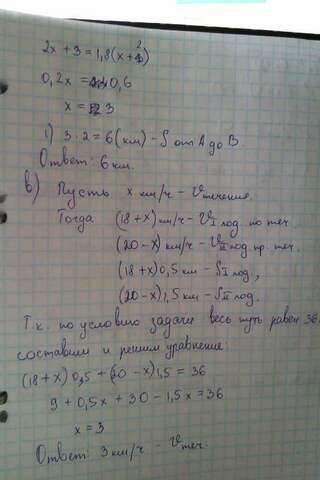 2x + 3 = 1,8(x + 2)
0,2x = 0,6
x = 3
1) 3 · 2 = 6 (км) – S от А до В
Ответ: 6 км.
в) Пусть x км/ч – Vтечения
Тогда (18 + x) км/ч – V I лод. по теч.
(20 – x) км/ч – V II лод. пр. теч.
(18 + x) 0,5 км – S I лод.,
(20 – x) 1,5 км – S II лод.
Т.к. по условию задачи весь путь равен 36
составим и решим уравнение:
(18 + x) 0,5 + (20 – x) 1,5 = 36
9 + 0,5x + 30 – 1,5x = 36
x = 3
Ответ: 3 км/ч – Vтеч.